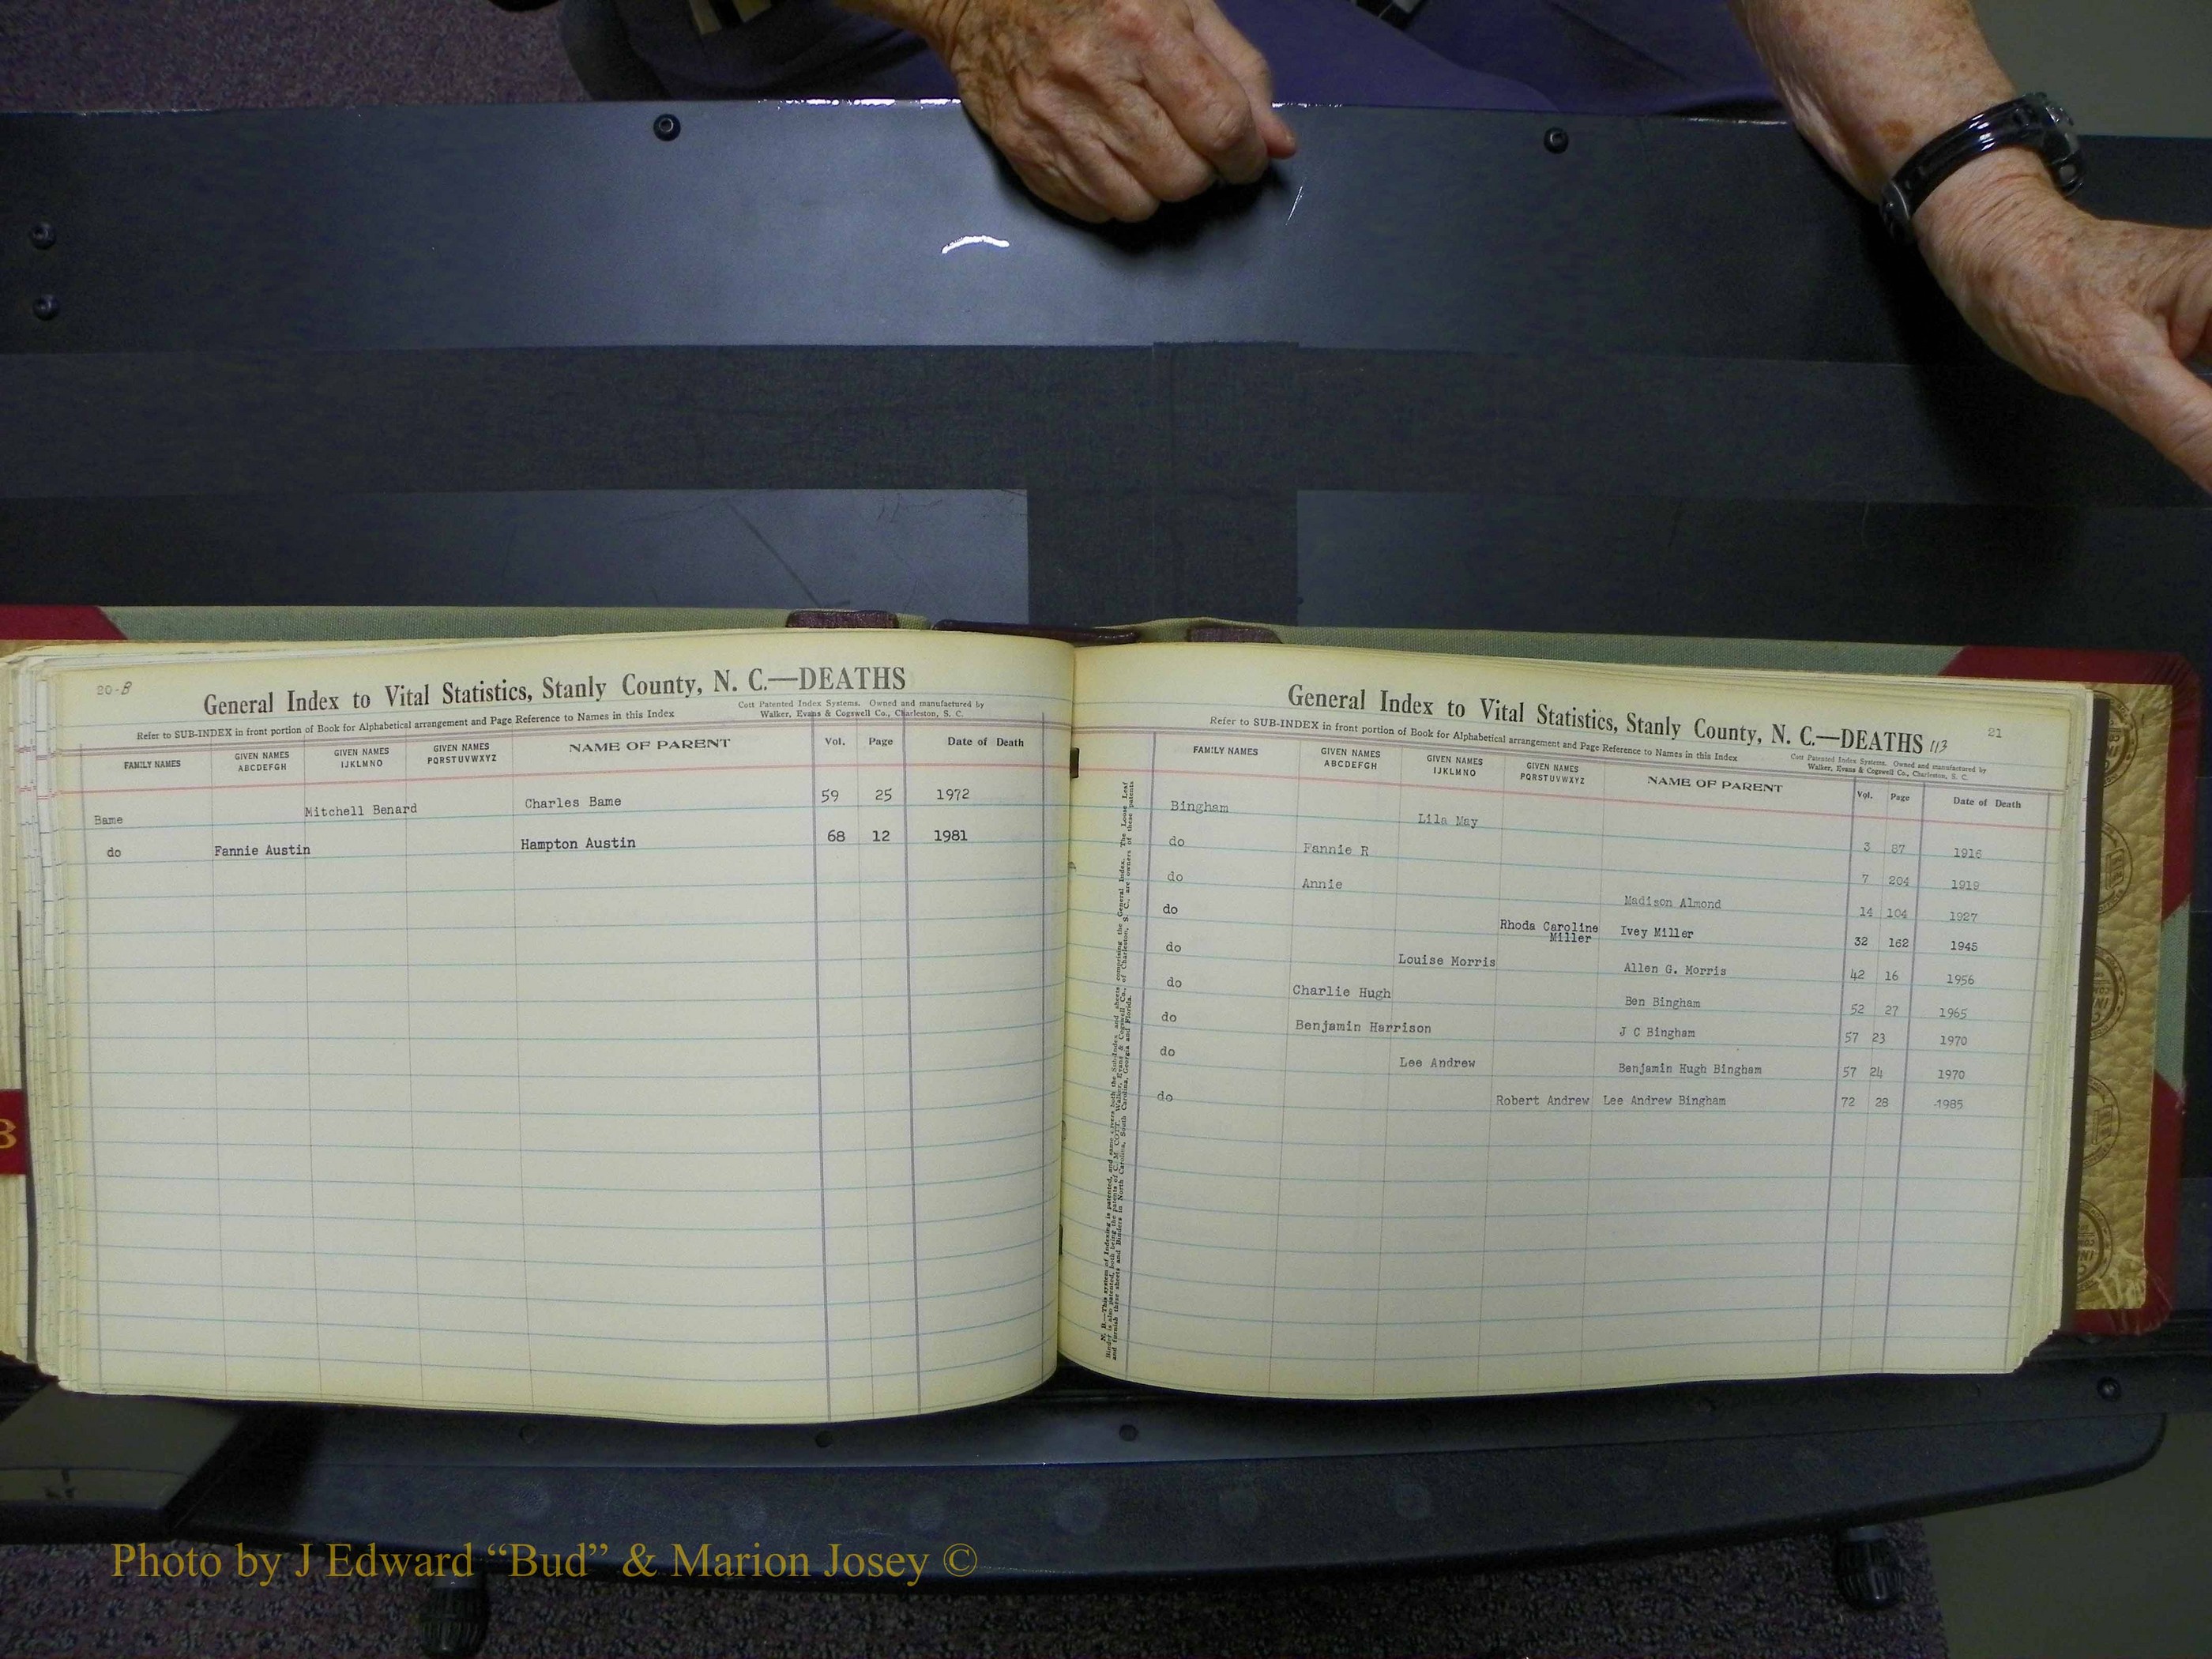 20-B
General Index to Vital Statistics, Stanly County, N. C.—DEATHS
Refer to SUB-INDEX in front portion of Book for Alphabetical arrangement and Page Reference to Names in this Index
Cott Patented Index Systems. Owned and manufactured by
Walker, Evans & Cogswell Co., Charleston, S. C.
FAMILY NAMES GIVEN NAMES ABCDEFGH GIVEN NAMES IJKLMNO GIVEN NAMES PQRSTUVWXYZ NAME OF PARENT Vol. Page Date of Death
Bame Mitchell Benard Charles Bame 59 25 1972
do Fannie Austin Hampton Austin 68 12 1981
21
General Index to Vital Statistics, Stanly County, N. C.—DEATHS 113
Refer to SUB-INDEX in front portion of Book for Alphabetical arrangement and Page Reference to Names in this Index
Cott Patented Index Systems. Owned and manufactured by
Walker, Evans & Cogswell Co., Charleston, S. C.
FAMILY NAMES GIVEN NAMES ABCDEFGH GIVEN NAMES IJKLMNO GIVEN NAMES PQRSTUVWXYZ NAME OF PARENT Vol. Page Date of Death
Bingham Lila May 3 87 1916
do Fannie R 7 204 1919
do Annie Madison Almond 14 104 1927
do Rhoda Caroline Miller Ivey Miller 32 162 1945
do Louise Morris Allen G. Morris 42 16 1956
do Charlie Hugh Ben Bingham 52 27 1965
do Benjamin Harrison J C Bingham 57 23 1970
do Lee Andrew Benjamin Hugh Bingham 57 24 1970
do Robert Andrew Lee Andrew Bingham 72 28 -1985
N. B.—This system of Indexing is patented, and same covers both the Sub-Index and sheets comprising the General Index. The Loose Leaf
Binder is also patented, both being the patents of C. M. COTT. Walker, Evans & Cogswell Co., of Charleston, S. C., are owners of these patents
and furnish these sheets and Binders in North Carolina, South Carolina, Georgia and Florida.
B
Photo by J Edward “Bud” & Marion Josey ©